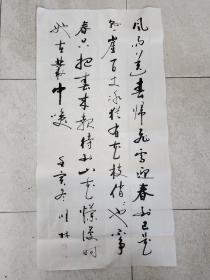 风雨送春归飞雪迎春到已是
悬崖百丈冰犹有花枝俏俏也不争
春只把春来报待到山花烂漫时
她在叢中笑 壬寅冬 林